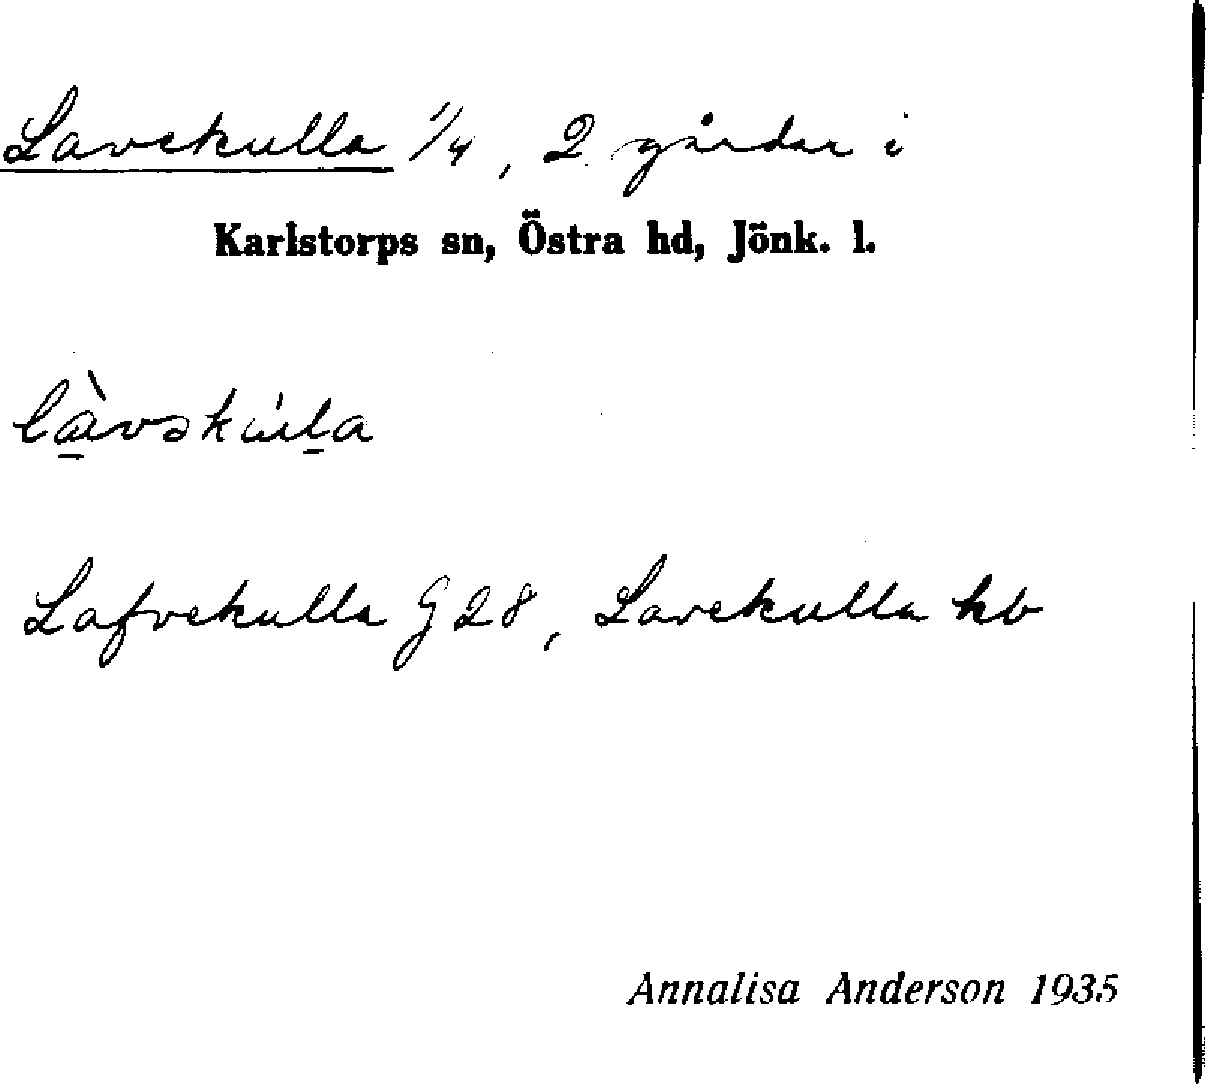 Lavekulla 1/4, 2 gårdar i
Karlstorps sn, Östra hd, Jönk. l.
Lafvekulla G 28, Lavekulla kb
Annalisa Anderson 1935